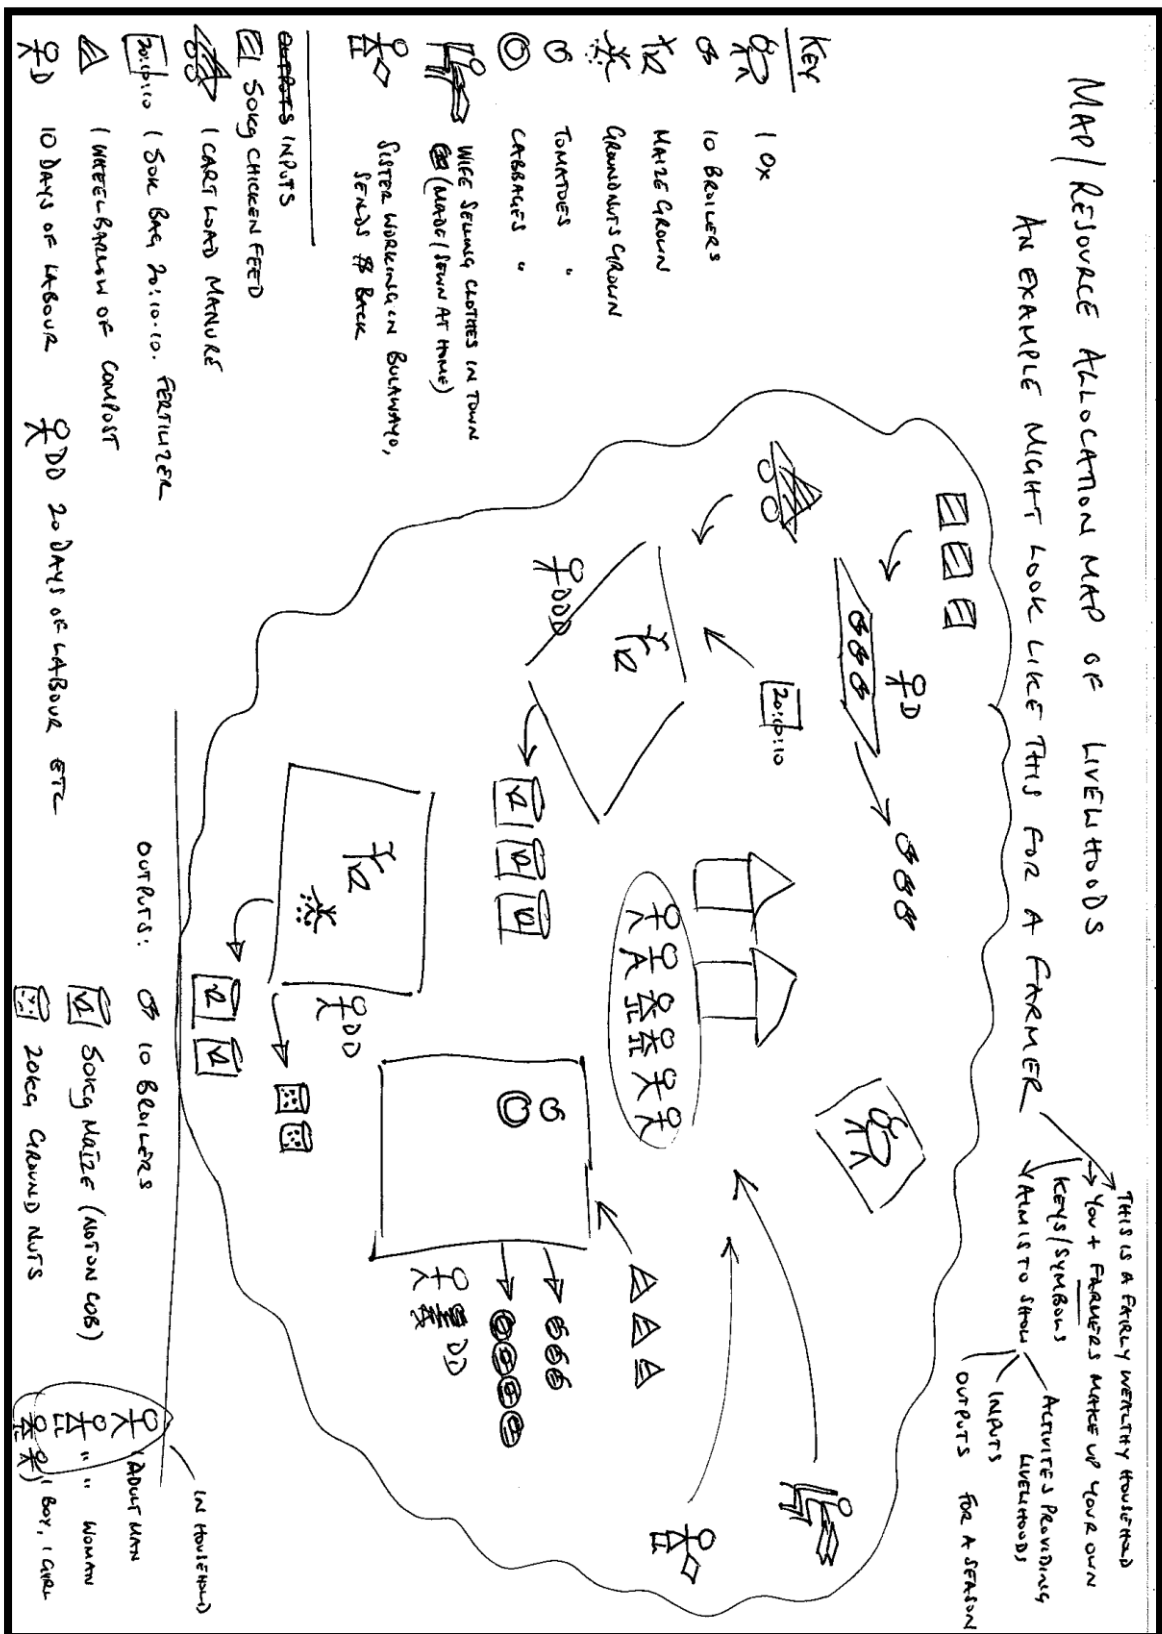 MAP/RESOURCE ALLOCATION MAP OF LIVELIHOODS
AN EXAMPLE MIGHT LOOK LIKE THIS FOR A FARMER
THIS IS A FAIRLY WEALTHY HOUSEHOLD
YOU + FARMERS MAKE UP YOUR OWN
KEYS/SYMBOLS
AIM IS TO SHOW
ACTIVITES PROVIDING
LIVELIHOODS
INPUTS
OUTPUTS FOR A SEASON
KEY
1 OX
10 BROILERS
MAIZE GROWN
GROUNDNUTS GROWN
TOMATOES "
CABBAGES "
WIFE SELLING CLOTHES IN TOWN
(MADE/SEWN AT HOME)
SISTER WORKING IN BULAWAYO,
SENDS $ BACK
OUTPUTS INPUTS
50KG CHICKEN FEED
1 CART LOAD MANURE
20:10:10 1 50K BAG 20:10:10. FERTILIZER
1 WHEELBARROW OF COMPOST
D 10 DAYS OF LABOUR
DD 20 DAYS OF LABOUR ETC
D
20:10:10
DDD
DD
DD
OUTPUTS: 10 BROILERS
50KG MAIZE (NOT ON COB)
20KG GROUND NUTS
IN HOUSEHOLD
1 ADULT MAN
" " WOMAN
1 BOY, 1 GIRL